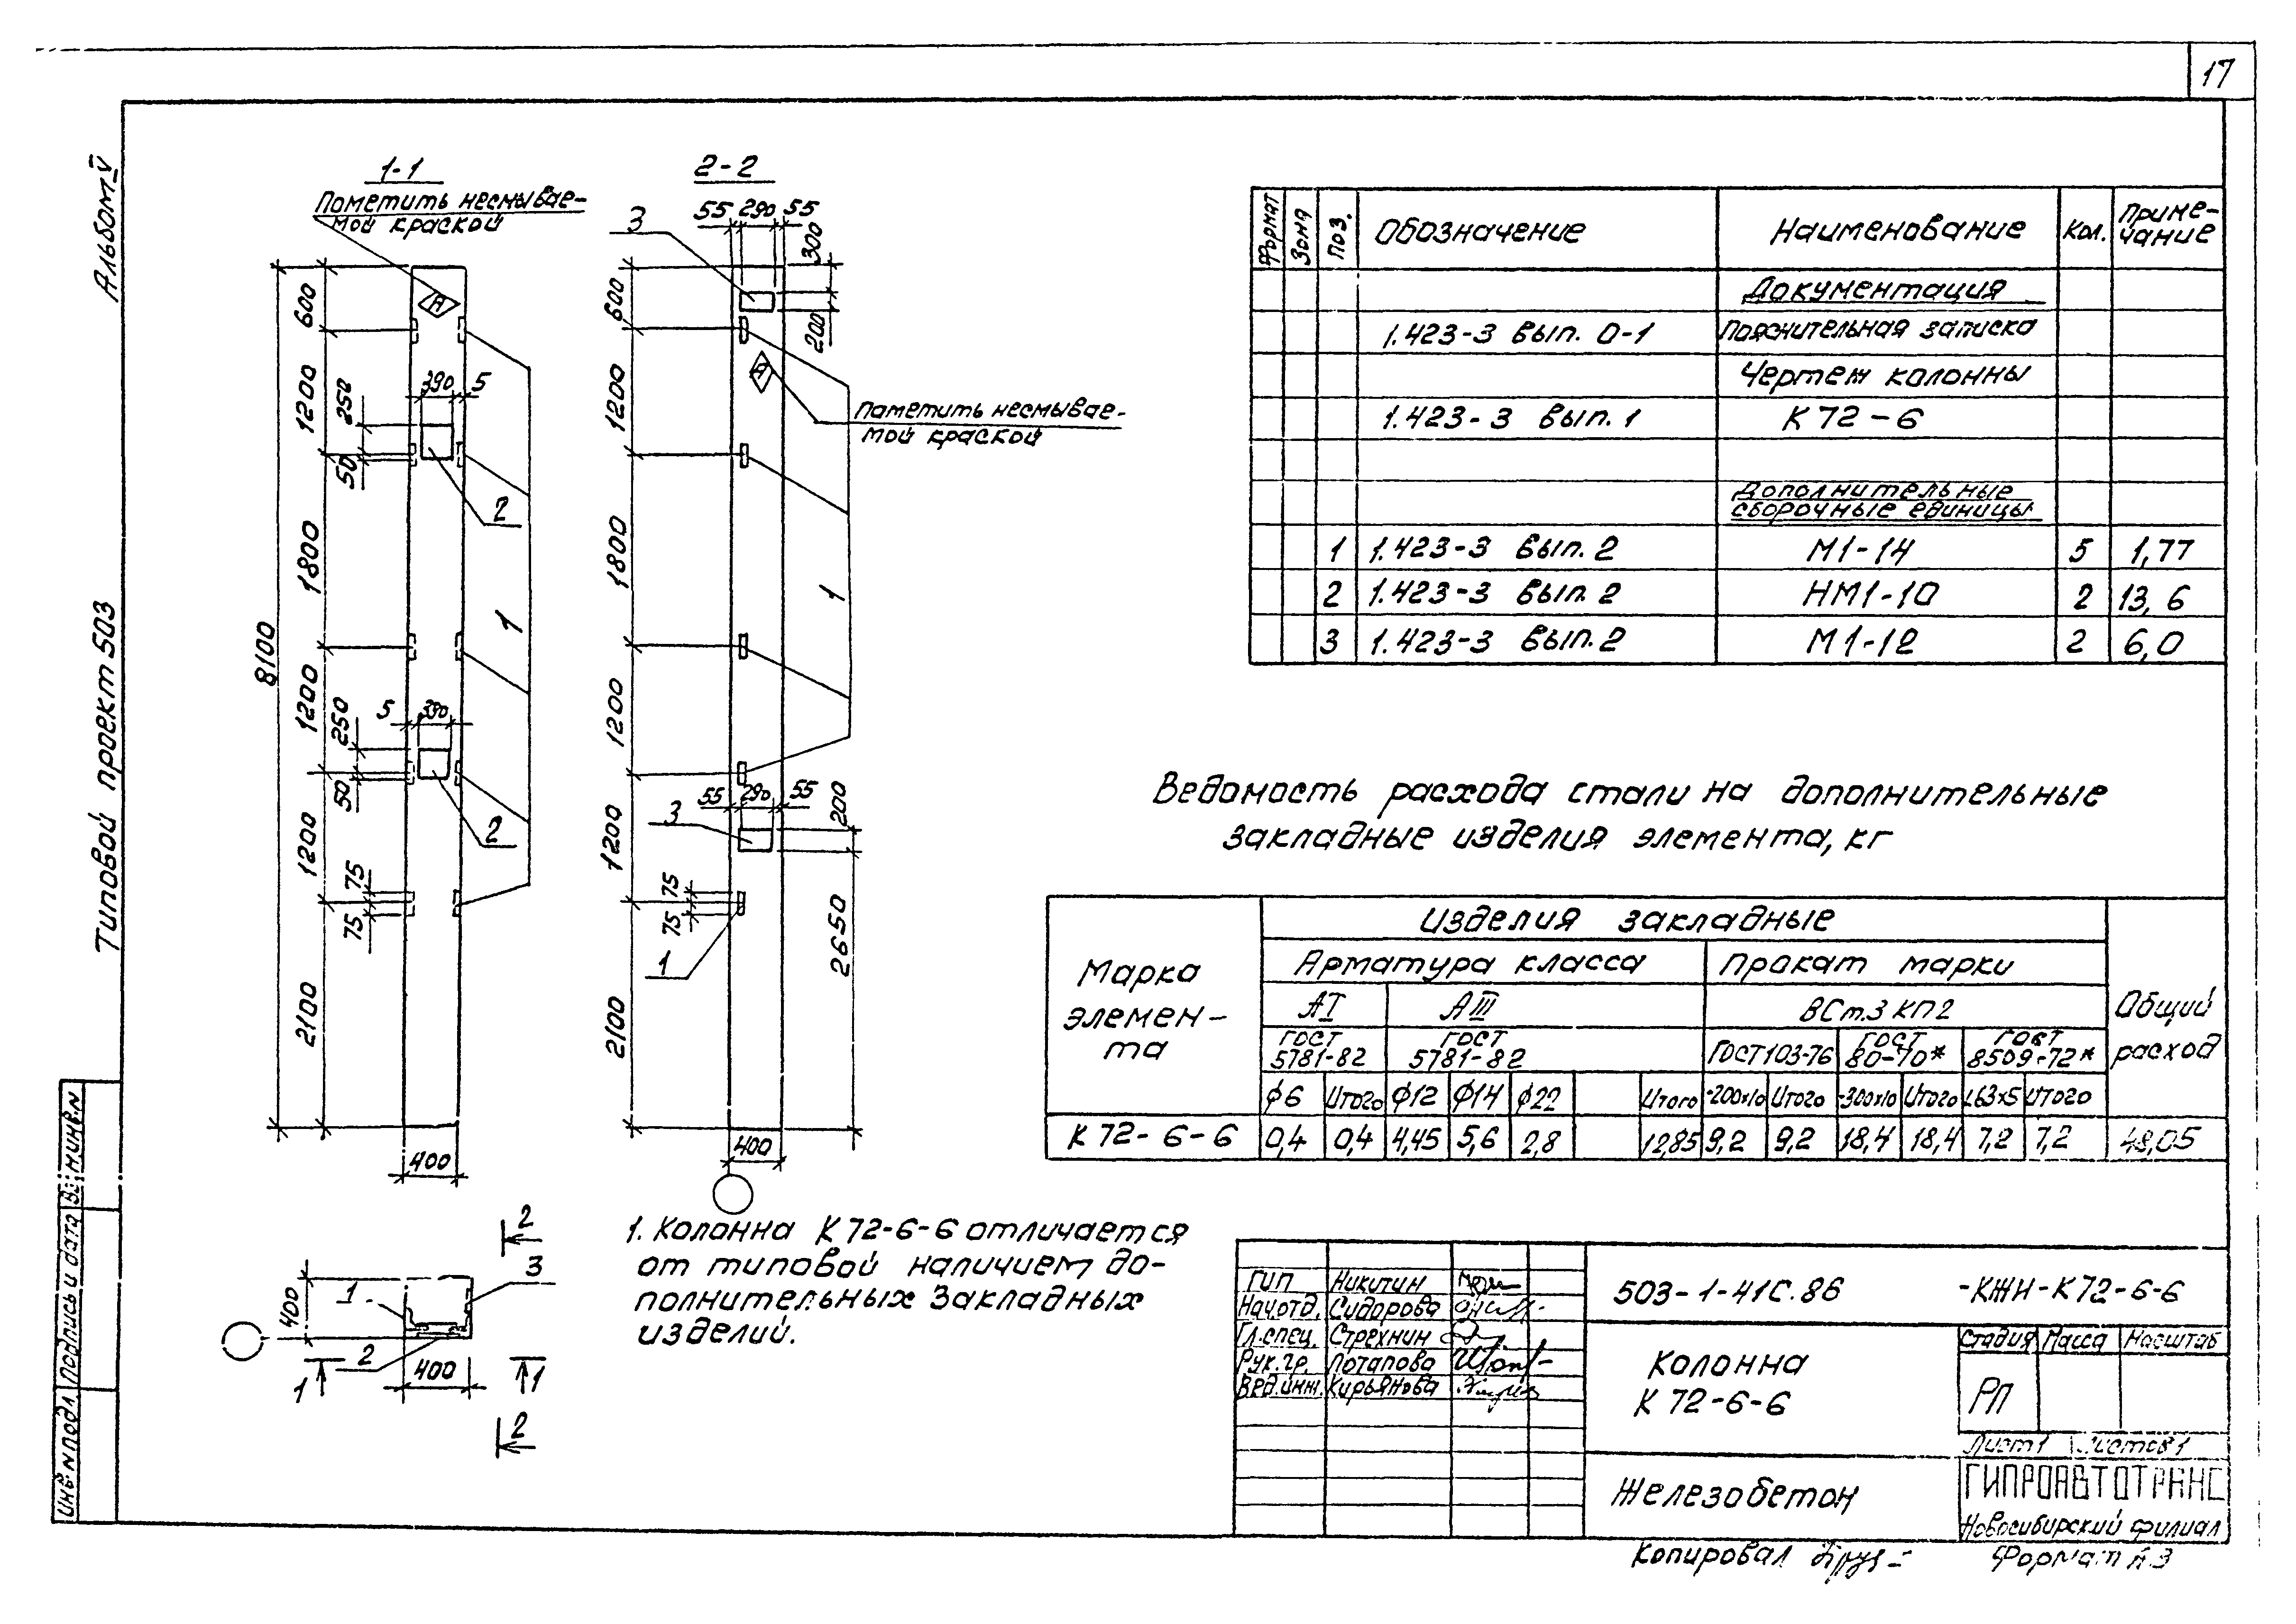 17
Альбом V
Типовой проект 503
1-1
Пометить несмывае-
мой краской
A
8100
600
1200
1800
1200
1200
2100
250
50
390
5
2
1
5
390
250
50
2
75
75
400
2-2
55 290 55
3
300
200
600
1200
1800
1200
1200
2100
A
Пометить несмывае-
мой краской
1
55 290 55
3
200
2650
75
75
1
400
2
3
1
400
2
400
1
1
2
1. Колонна К 72-6-6 отличается
от типовой наличием до-
полнительных закладных
изделий.
Формат Зона Поз. Обозначение Наименование Кол. Приме-
чание
Документация
1.423-3 вып. 0-1 Пояснительная записка
Чертеж колонны
1.423-3 вып. 1 К 72-6
Дополнительные
сборочные единицы
1 1.423-3 вып. 2 М1-14 5 1,77
2 1.423-3 вып. 2 НМ1-10 2 13,6
3 1.423-3 вып. 2 М1-12 2 6,0
Ведомость расхода стали на дополнительные
закладные изделия элемента, кг
Марка
элемен-
та
Изделия закладные
Арматура класса Прокат марки
АI АIII ВСт.3 КП2
Общий
расход
ГОСТ
5781-82
ГОСТ
5781-82
ГОСТ 103-76
ГОСТ
80-70*
ГОСТ
8509-72*
ϕ6 Итого ϕ12 ϕ14 ϕ22 Итого -200x10 Итого -300x10 Итого L63x5 Итого
К 72-6-6 0,4 0,4 4,45 5,6 2,8 12,85 9,2 9,2 18,4 18,4 7,2 7,2 48,05
ГИП Никитин
Нач.отд. Сидорова
Гл.спец. Стрехнин
Рук.гр. Потапова
Вед.инж. Кирьянова
503-1-41С.86 -КЖИ-К 72-6-6
Колонна
К 72-6-6
Стадия Масса Масштаб
РП
Лист 1 Листов 1
Железобетон
ГИПРОАВТОТРАНС
Новосибирский филиал
Копировал
Формат А3
Инв N подл Подпись и дата Вз. инв. N